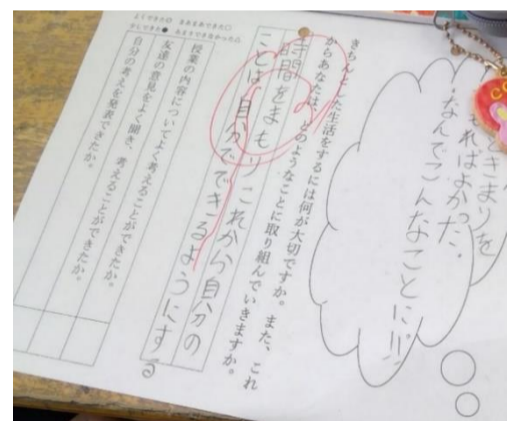 ときまりを
もればよかった。
なんでこんなことに!!
きちんとした生活をするには何が大切ですか。また、これ
からあなたは、どのようなことに取り組んでいきますか。
時間をまもり これから自分の
ことは、自分でできるようにする
授業の内容についてよく考えることができたか。
友達の意見をよく聞き、考えることができたか。
自分の考えを発表できたか。
よくできた◎ まあまあできた○
少しできた● あまりできなかった△